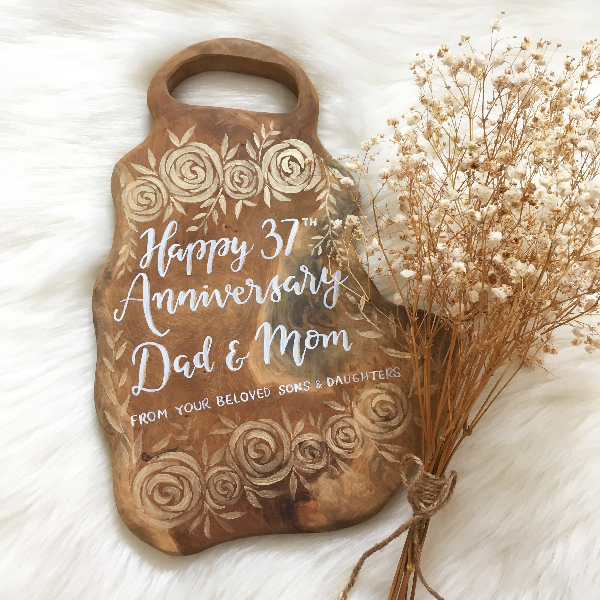 Happy 37TH
Anniversary
Dad & Mom
FROM YOUR BELOVED SONS & DAUGHTERS